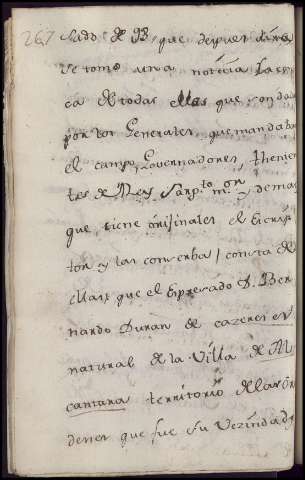 267
sado de 93, que despues
se tomò una noticia
ca de todas ellas que son da
por los Generales, que mandaba
el campo, Governadores, thenie
tes de Rey, Sarg.to m.or y demas
que tiene orijinales el Escrip
tor y las conserba / consta de
ellas que el Expresado D. Ber
nardo Duran de cazeres es
natural de la Villa de Al
cantara territorio de las Or
denes que fue su Vezindad